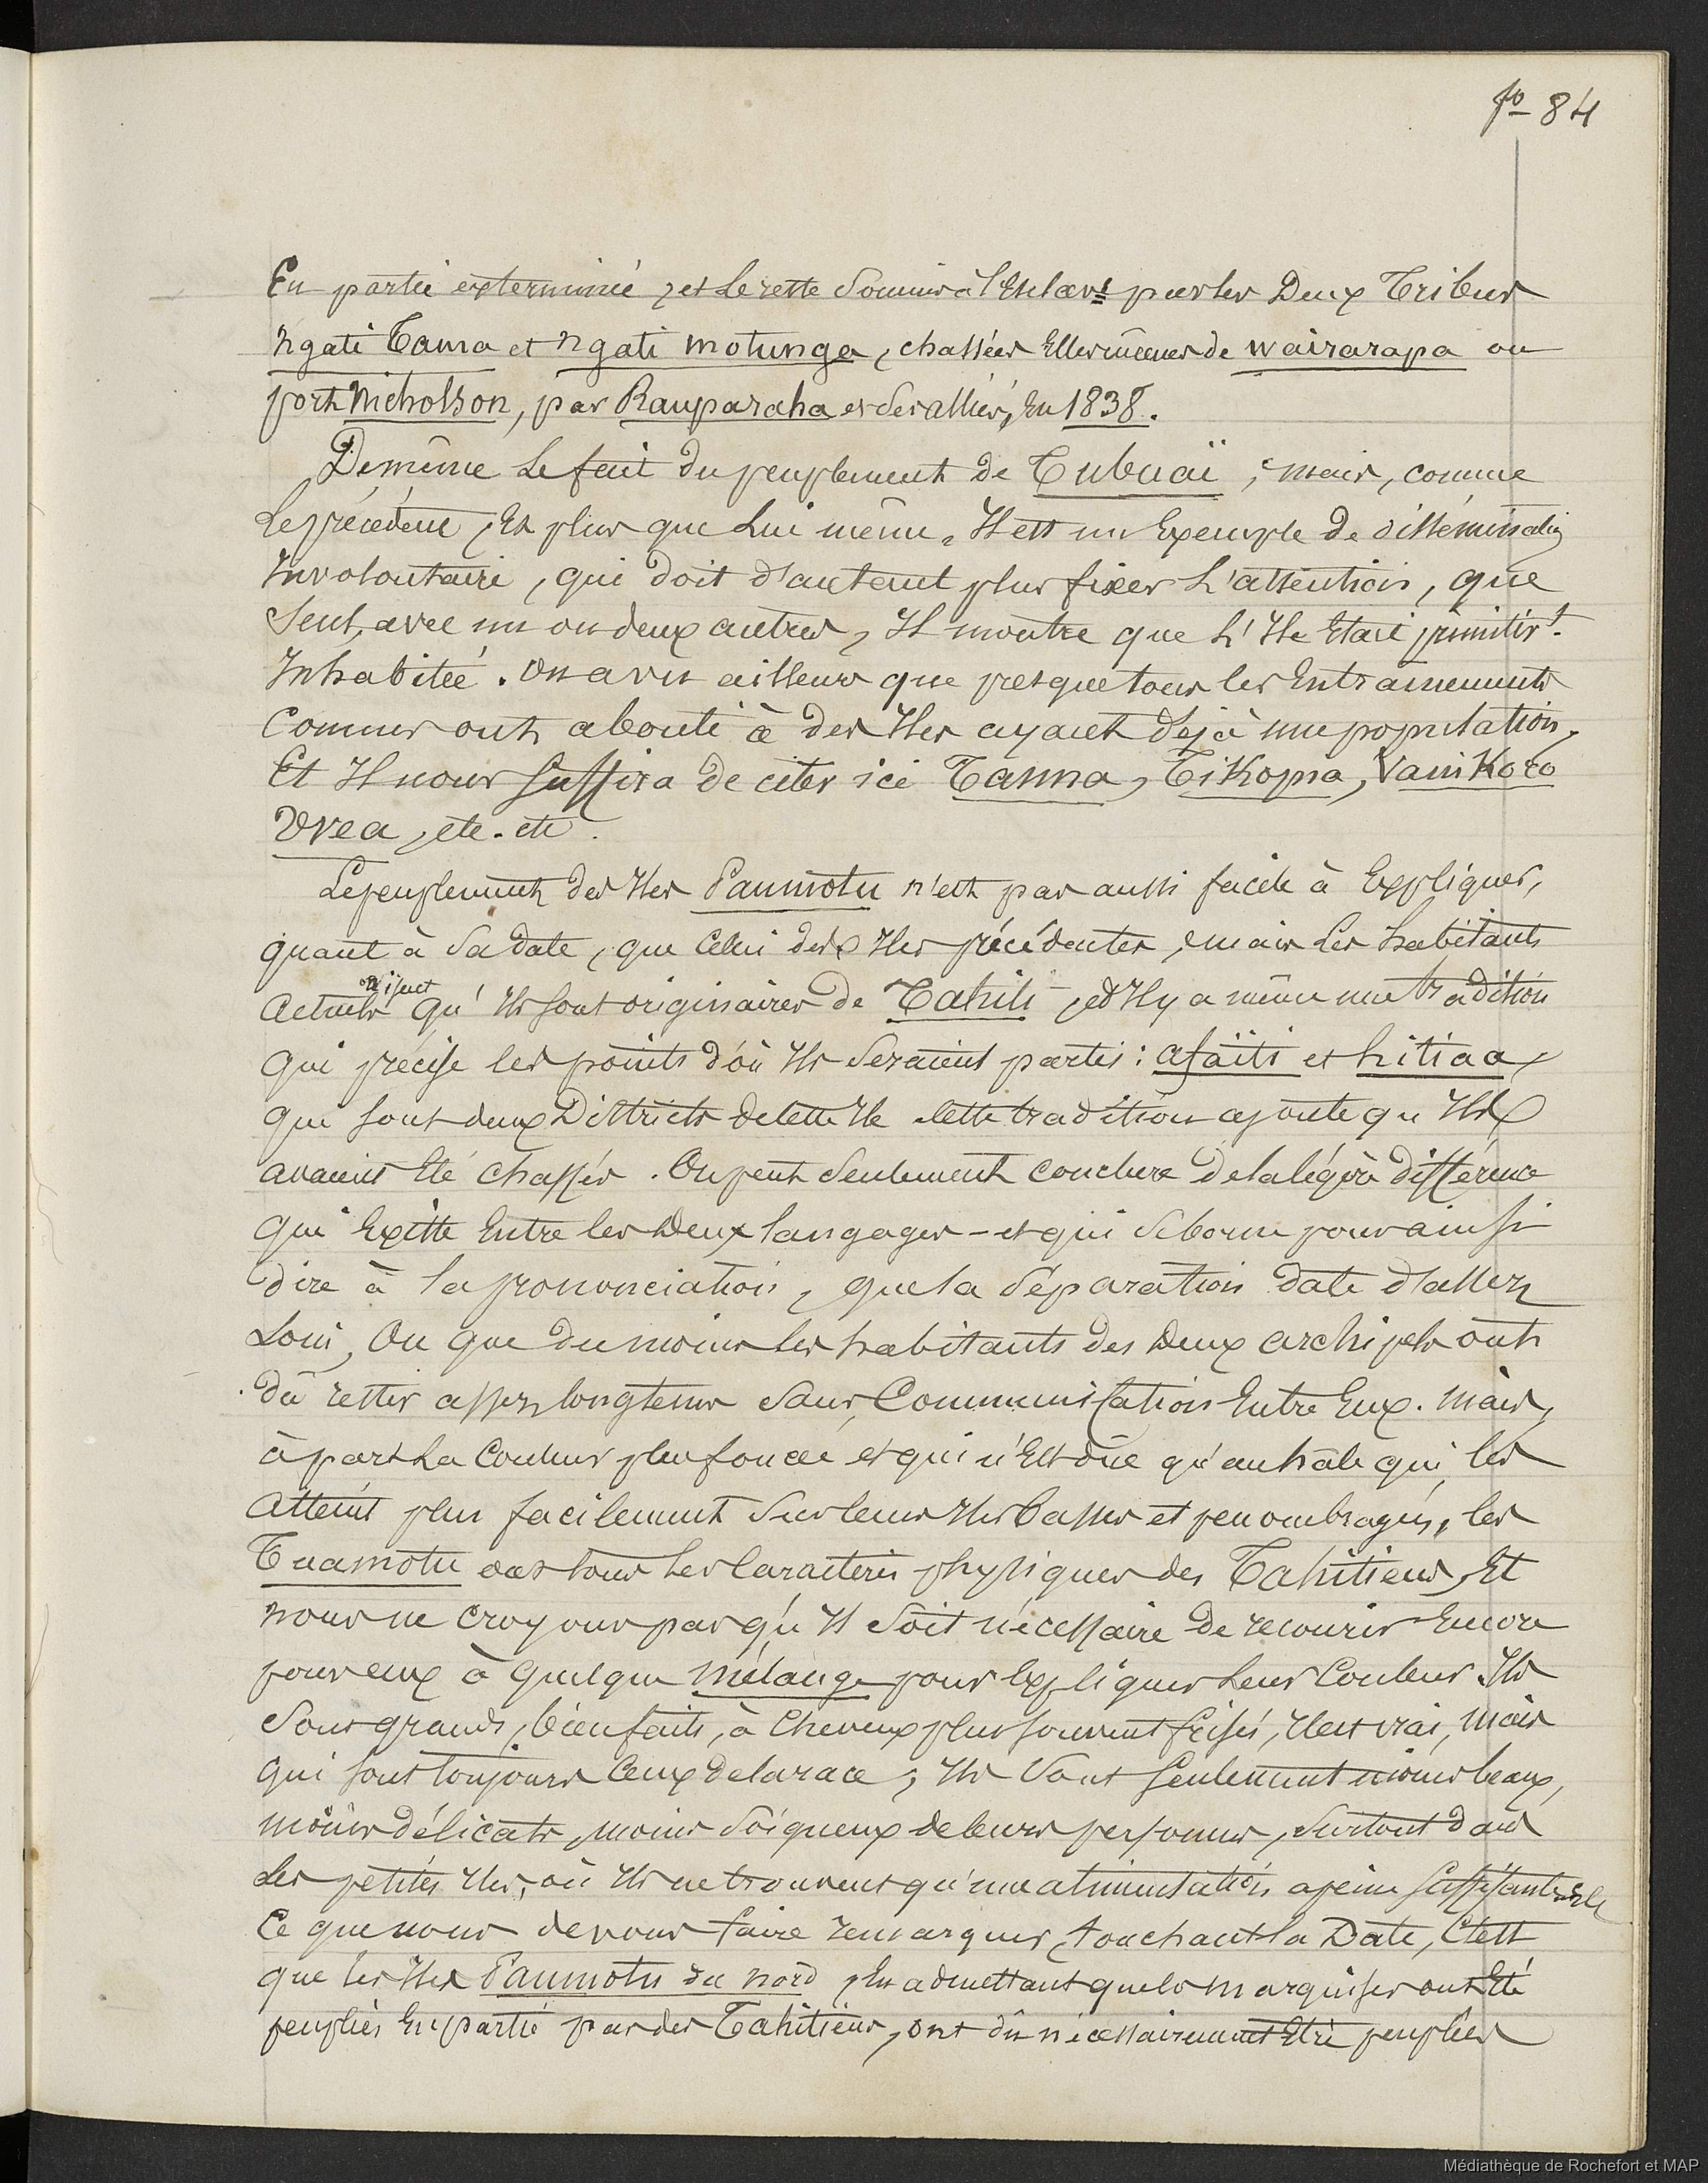 fo 84
En partie exterminée, et le reste soumis à l'Esclave par les Deux Tribus
ngati Tama et ngati motunga, chassées Elles mêmes de wairarapa ou
port Nicholson, par Rauparaha et ses alliés, En 1838.
De même le fait du peuplement de Tubuaï ; mais, comme
le précédent, Et plus que lui même, Il est un Exemple de dissémination
Involontaire, qui doit d'autant plus fixer l'attention, que
seul, avec un ou deux autres, Il montre que l'Ile Etait primitivt.
Inhabitée. On a vu ailleurs que presque tous les Entrainements
Connus ont abouti à des Iles ayant déjà une population,
Et Il nous suffira de citer ici Tanna, Tikopia, Vanikoro
Uvea, etc. etc.
Le peuplement des Iles Paumotu n'est pas aussi facile à Expliquer,
quant à sa date, que celui des Iles précédentes, mais les habitants
actuels disent qu'Ils sont originaires de Tahiti, et Il y a même une tradition
qui précise les points d'où Ils seraient partis : afaïti et hitiaa,
qui sont deux Districts de cette Ile cette tradition ajoute qu'Ils
avaient Eté chassés. On peut seulement conclure de la légère différence
qui Existe Entre les Deux langages - et qui se borne pour ainsi
dire à la prononciation, que la séparation date d'assez
Loin, Ou que du moins les habitants des Deux archipels ont
dû rester assez longtems sans Communication Entre Eux. Mais,
à part la Couleur plus foncée et qui n'Est due qu'au hâle qui les
atteint plus facilement sur leurs Iles basses et peu ombragées, les
Tuamotu ont tous les Caractères physiques des Tahitiens, Et
nous ne croyons pas qu'Il soit nécessaire de recourir Encore
pour eux à quelque mélange pour Expliquer leur Couleur. Ils
sont grands, bien faits, à cheveux plus souvent frisés, Il est vrai, mais
qui sont toujours ceux de la race ; Ils sont seulement moins beaux,
moins délicats, moins soigneux de leurs personnes, surtout dans
les petites Iles, où Ils ne trouvent qu'une alimentation a peine suffisante.
Ce que nous devons faire remarquer, touchant la Date, C'est
que les Iles Paumotu du nord, En admettant que les marquises ont Eté
peuplées En partie par des Tahitiens, ont dû nécessairement Etre peuplées
Médiathèque de Rochefort et MAP